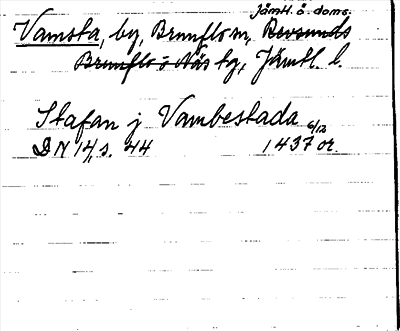 Jämtl. ö. doms.
Vamsta, by, Brunflo sn, Revsunds
Brunflo o. Näs tg, Jämtl. l.
Stafan j Vambestada
DN 14, s. 44 6/12 1437 or.